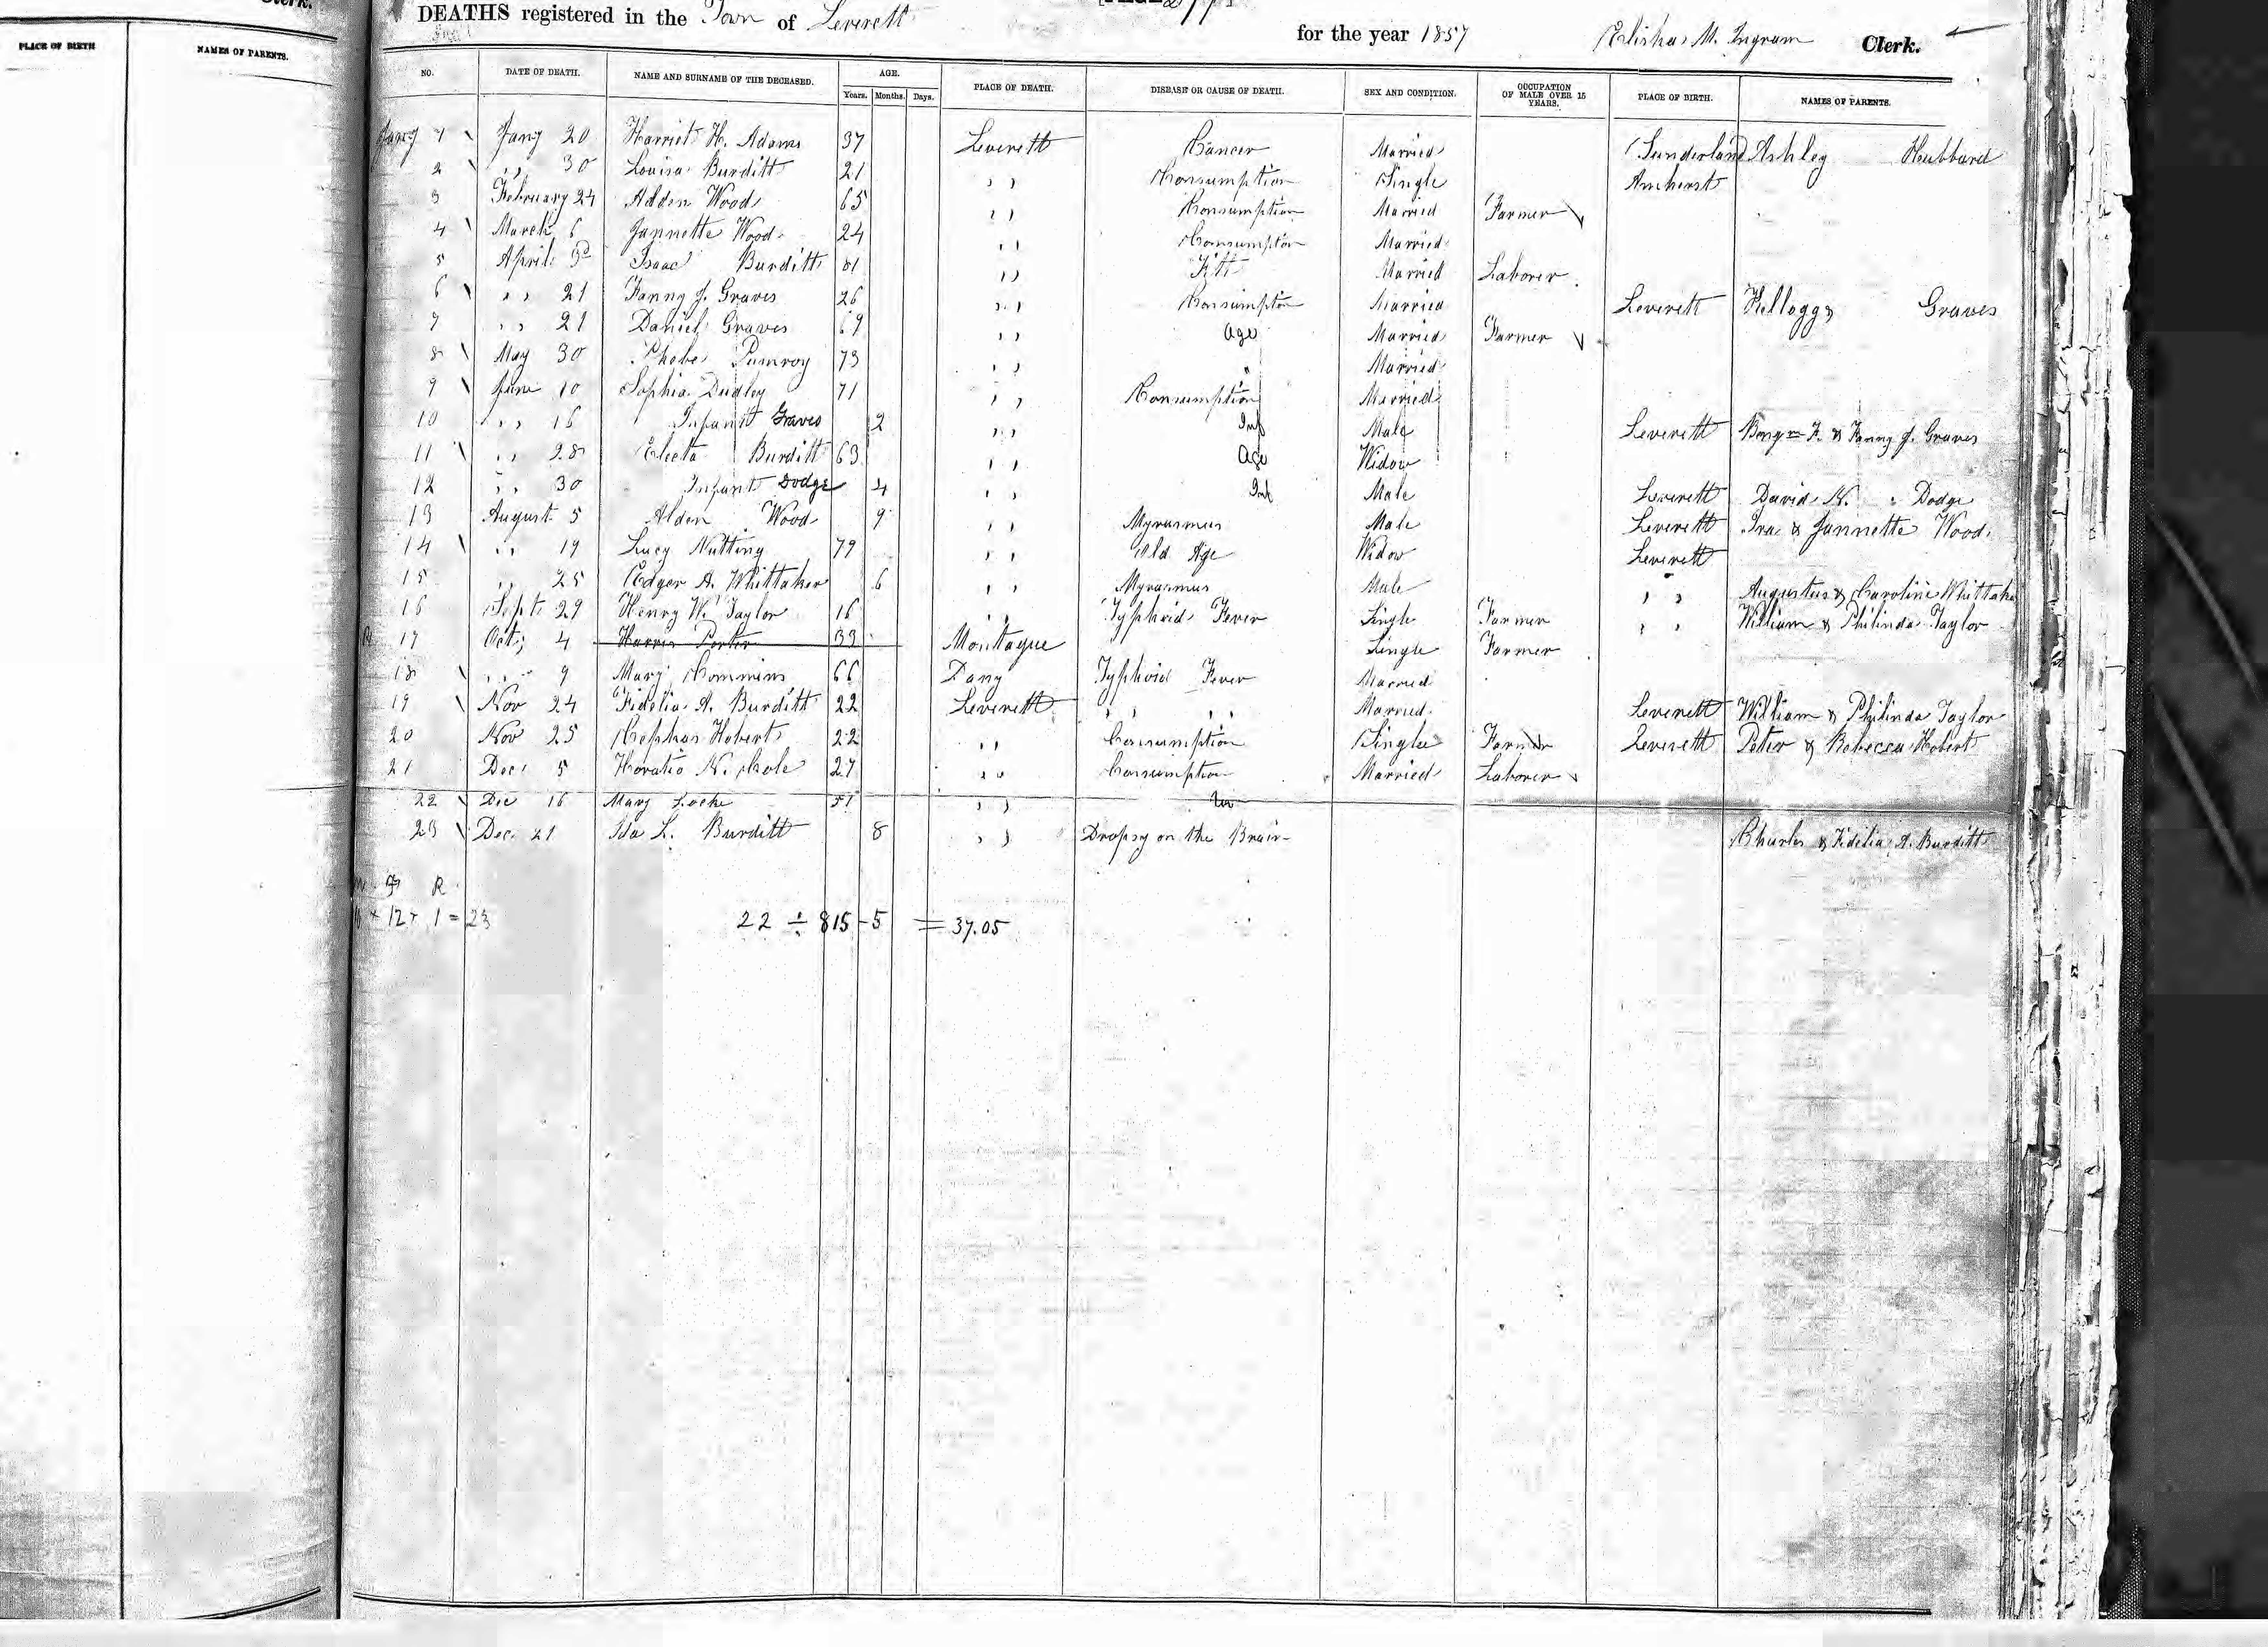 Clerk.
PLACE OF BIRTH NAMES OF PARENTS.
DEATHS registered in the Town of Leverett for the year 1857 Elisha M. Ingram Clerk.
NO. DATE OF DEATH. NAME AND SURNAME OF THE DECEASED. AGE. PLACE OF DEATH. DISEASE OR CAUSE OF DEATH. SEX AND CONDITION. OCCUPATION OF MALE OVER 15 YEARS. PLACE OF BIRTH. NAMES OF PARENTS.
Years. Months. Days.
Jany 1 Jany 20 Harriet H. Adams 37 Leverett Cancer Married Sunderland Ashley Hubbard
2 ,, 30 Louisa Burditt 21 ,, Consumption Single Amherst
3 February 24 Alden Wood 65 ,, Consumption Married Farmer
4 March 6 Jannette Wood 24 ,, Consumption Married
5 April 3d Isaac Burditt 61 ,, Fitts Married Laborer.
6 ,, 21 Fanny J. Graves 26 ,, Consumption Married Leverett Kellogg Graves
7 ,, 21 Daniel Graves 69 ,, Age Married Farmer
8 May 30 Phebe Pumroy 73 ,, " Married
9 June 10 Sophia Dudley 71 ,, Consumption Married
10 ,, 16 Infant Graves 2 ,, Inf Male Leverett & Fanny J. Graves
11 ,, 28 Electa Burditt 63 ,, Age Widow
12 ,, 30 Infant Dodge 4 ,, Inf Male Leverett David N. Dodge
13 August 5 Alden Wood 9 ,, Myrasmus Male Leverett Ira & Jannette Wood.
14 ,, 19 Lucy Nutting 79 ,, Old Age Widow Leverett
15 ,, 25 Edger A. Whittaker 6 ,, Myrasmus Male ,, Augustus & Caroline Whittaker
16 Sept 29 Henry W. Taylor 16 ,, Typhoid Fever Single Farmer ,, William & Philinda Taylor
R 17 Oct; 4 Harris Porter 33 Montague Single Farmer
18 ,, 9 Mary Commins 66 Dany Typhoid Fever Married
19 Nov 24 Fidelia A. Burditt 22 Leverett ,, ,, Married. Leverett William & Philinda Taylor
20 Nov 25 Cephas Hobert 22 ,, Consumption Single Farmer Leverett Peter & Rebecca Hobert
21 Dec. 5 Horatio N. Cole 27 ,, Consumption Married Laborer
22 Dec 16 Mary Locke 51 ,,
23 Dec. 21 Ida L. Burditt 8 ,, Dropsy on the Brain Charles & Fidelia A. Burditt
R
+ 12 + 1 = 23 22 ÷ 815-5 = 37.05